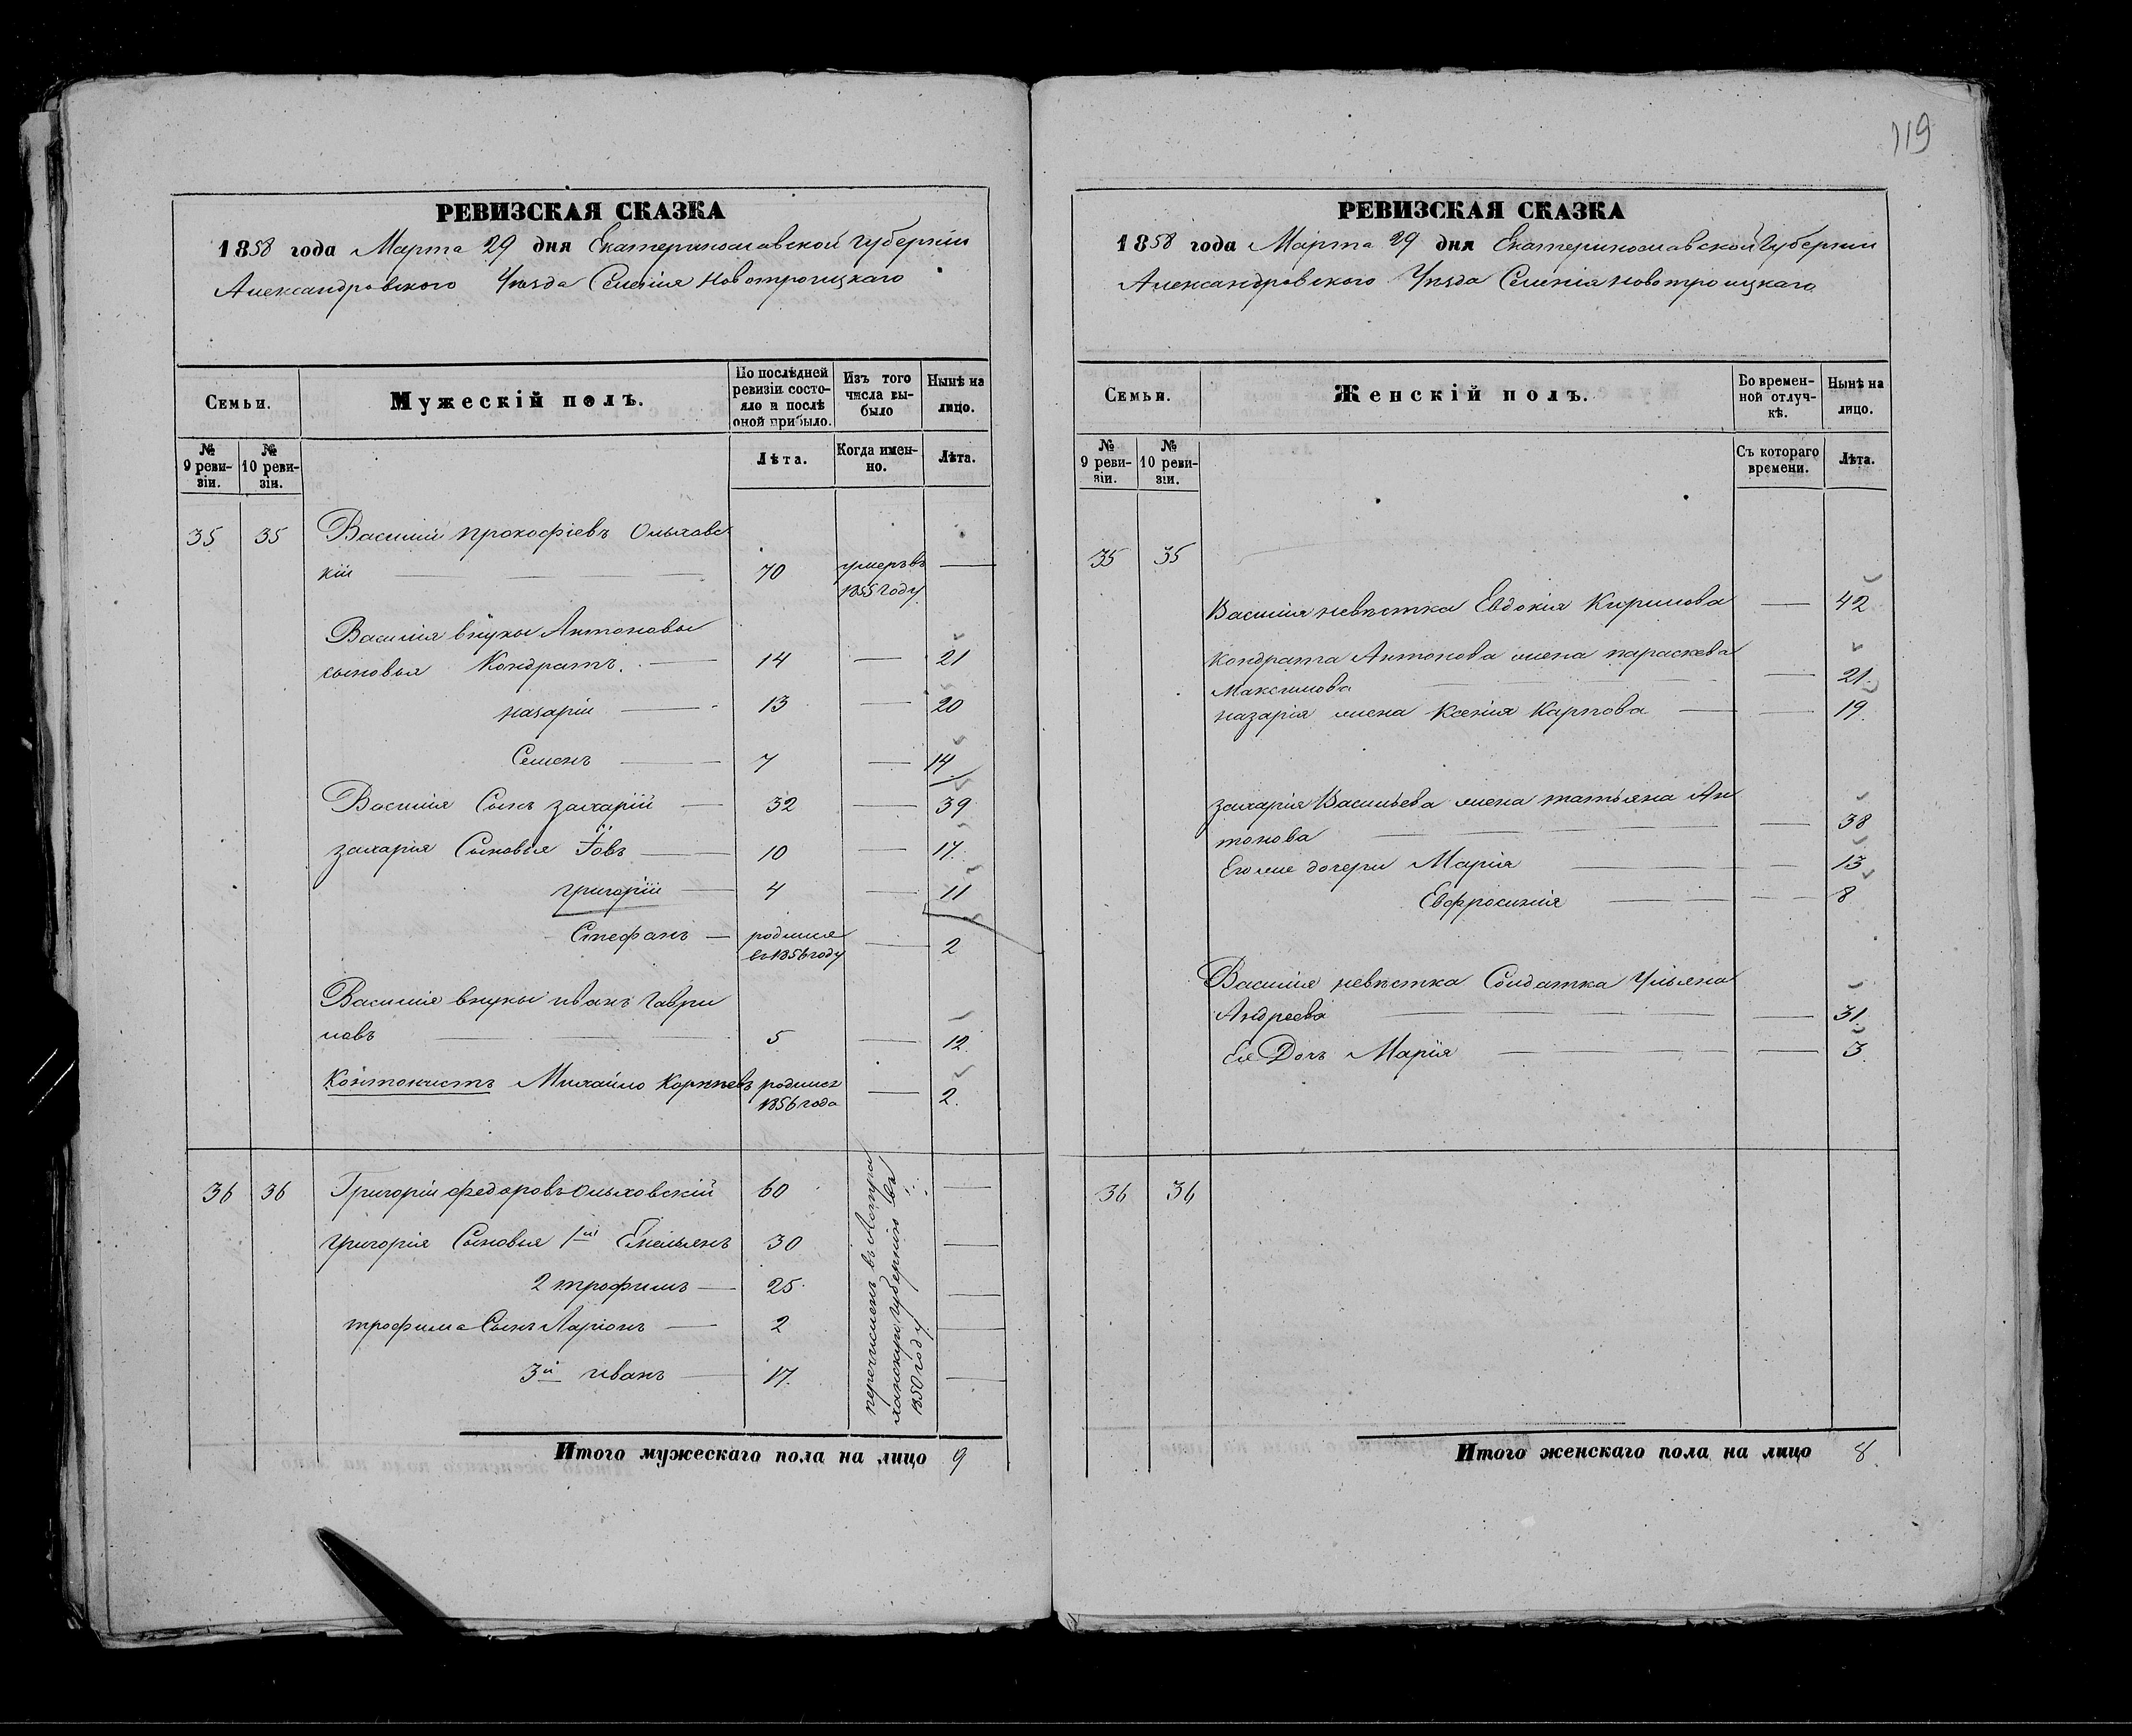 119
РЕВИЗСКАЯ СКАЗКА
1858 года Марта 29 дня Екатеринославской Губерніи
Александровского Уѣзда Селенія Новотроицкаго
Семьи.
Мужескій полъ.
По послѣдней ревизіи состояло и послѣ оной прибыло.
Изъ того числа выбыло
Нынѣ на лицо.
№ 9 ревизіи.
№ 10 ревизіи.
Лѣта.
Когда именно.
Лѣта.
35 35 Василій Прокофіевъ Ольховс
кій 70 умеръ въ 1855 году
Василія внуки Антоновы
сыновья Кондратъ. 14 21
Назарій 13 20
Семенъ 7 14
Василія Сынъ Захарій 32 39
Захарія Сыновья Іовъ 10 17
Григорій 4 11
Стефанъ родился въ 1856 году 2
Василія внуки Иванъ Гаври
ловъ 5 12
Кантонистъ Михайло Корнѣевъ родился 1856 года 2.
36 36 Григорій Федоровъ Ольховскій 60
Григорія Сыновья 1й Емельянъ 30
2 Трофимъ 25
Трофима Сынъ Ларіонъ 2
3й Иванъ 17.
перечислен въ Астра
ханскую Губернію въ
1850 году
Итого мужескаго пола на лицо 9
РЕВИЗСКАЯ СКАЗКА
1858 года Марта 29 дня Екатеринославской Губерніи
Александровского Уѣзда Селенія Новотроицкаго
Семьи.
Женскій полъ.
Во временной отлучкѣ.
Нынѣ на лицо.
№ 9 ревизіи.
№ 10 ревизіи.
Съ котораго времени.
Лѣта.
35 35
Василія невѣстка Евдокія Кирилова 42
Кондрата Антонова жена Параскева
Максимова 21.
Назарія жена Ксенія Карпова 19.
Захарія Васильева жена Татьяна Ан
тонова 38
Его же дочери Марія 13
Евфросинія 8
Василія невѣстка Солдатка Ульяна
Андреева 31.
Ея Дочь Марія 3.
36 36
Итого женскаго пола на лицо 8